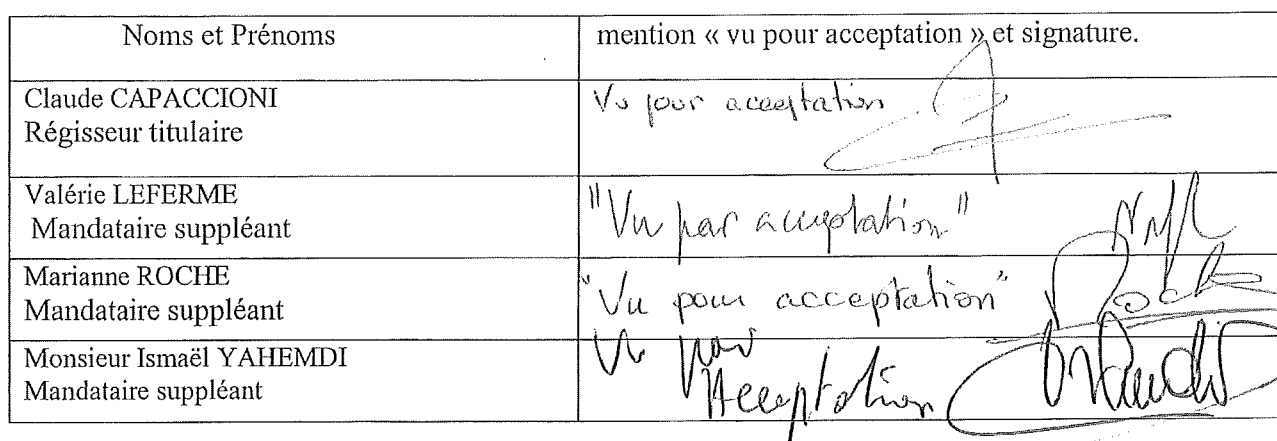 Noms et Prénoms
mention « vu pour acceptation » et signature.
Claude CAPACCIONI
Régisseur titulaire
Vu pour acceptation
Valérie LEFERME
Mandataire suppléant
"Vu par acceptation"
Marianne ROCHE
Mandataire suppléant
"Vu pour acceptation"
Roche
Monsieur Ismaël YAHEMDI
Mandataire suppléant
Vu pour
Acceptation